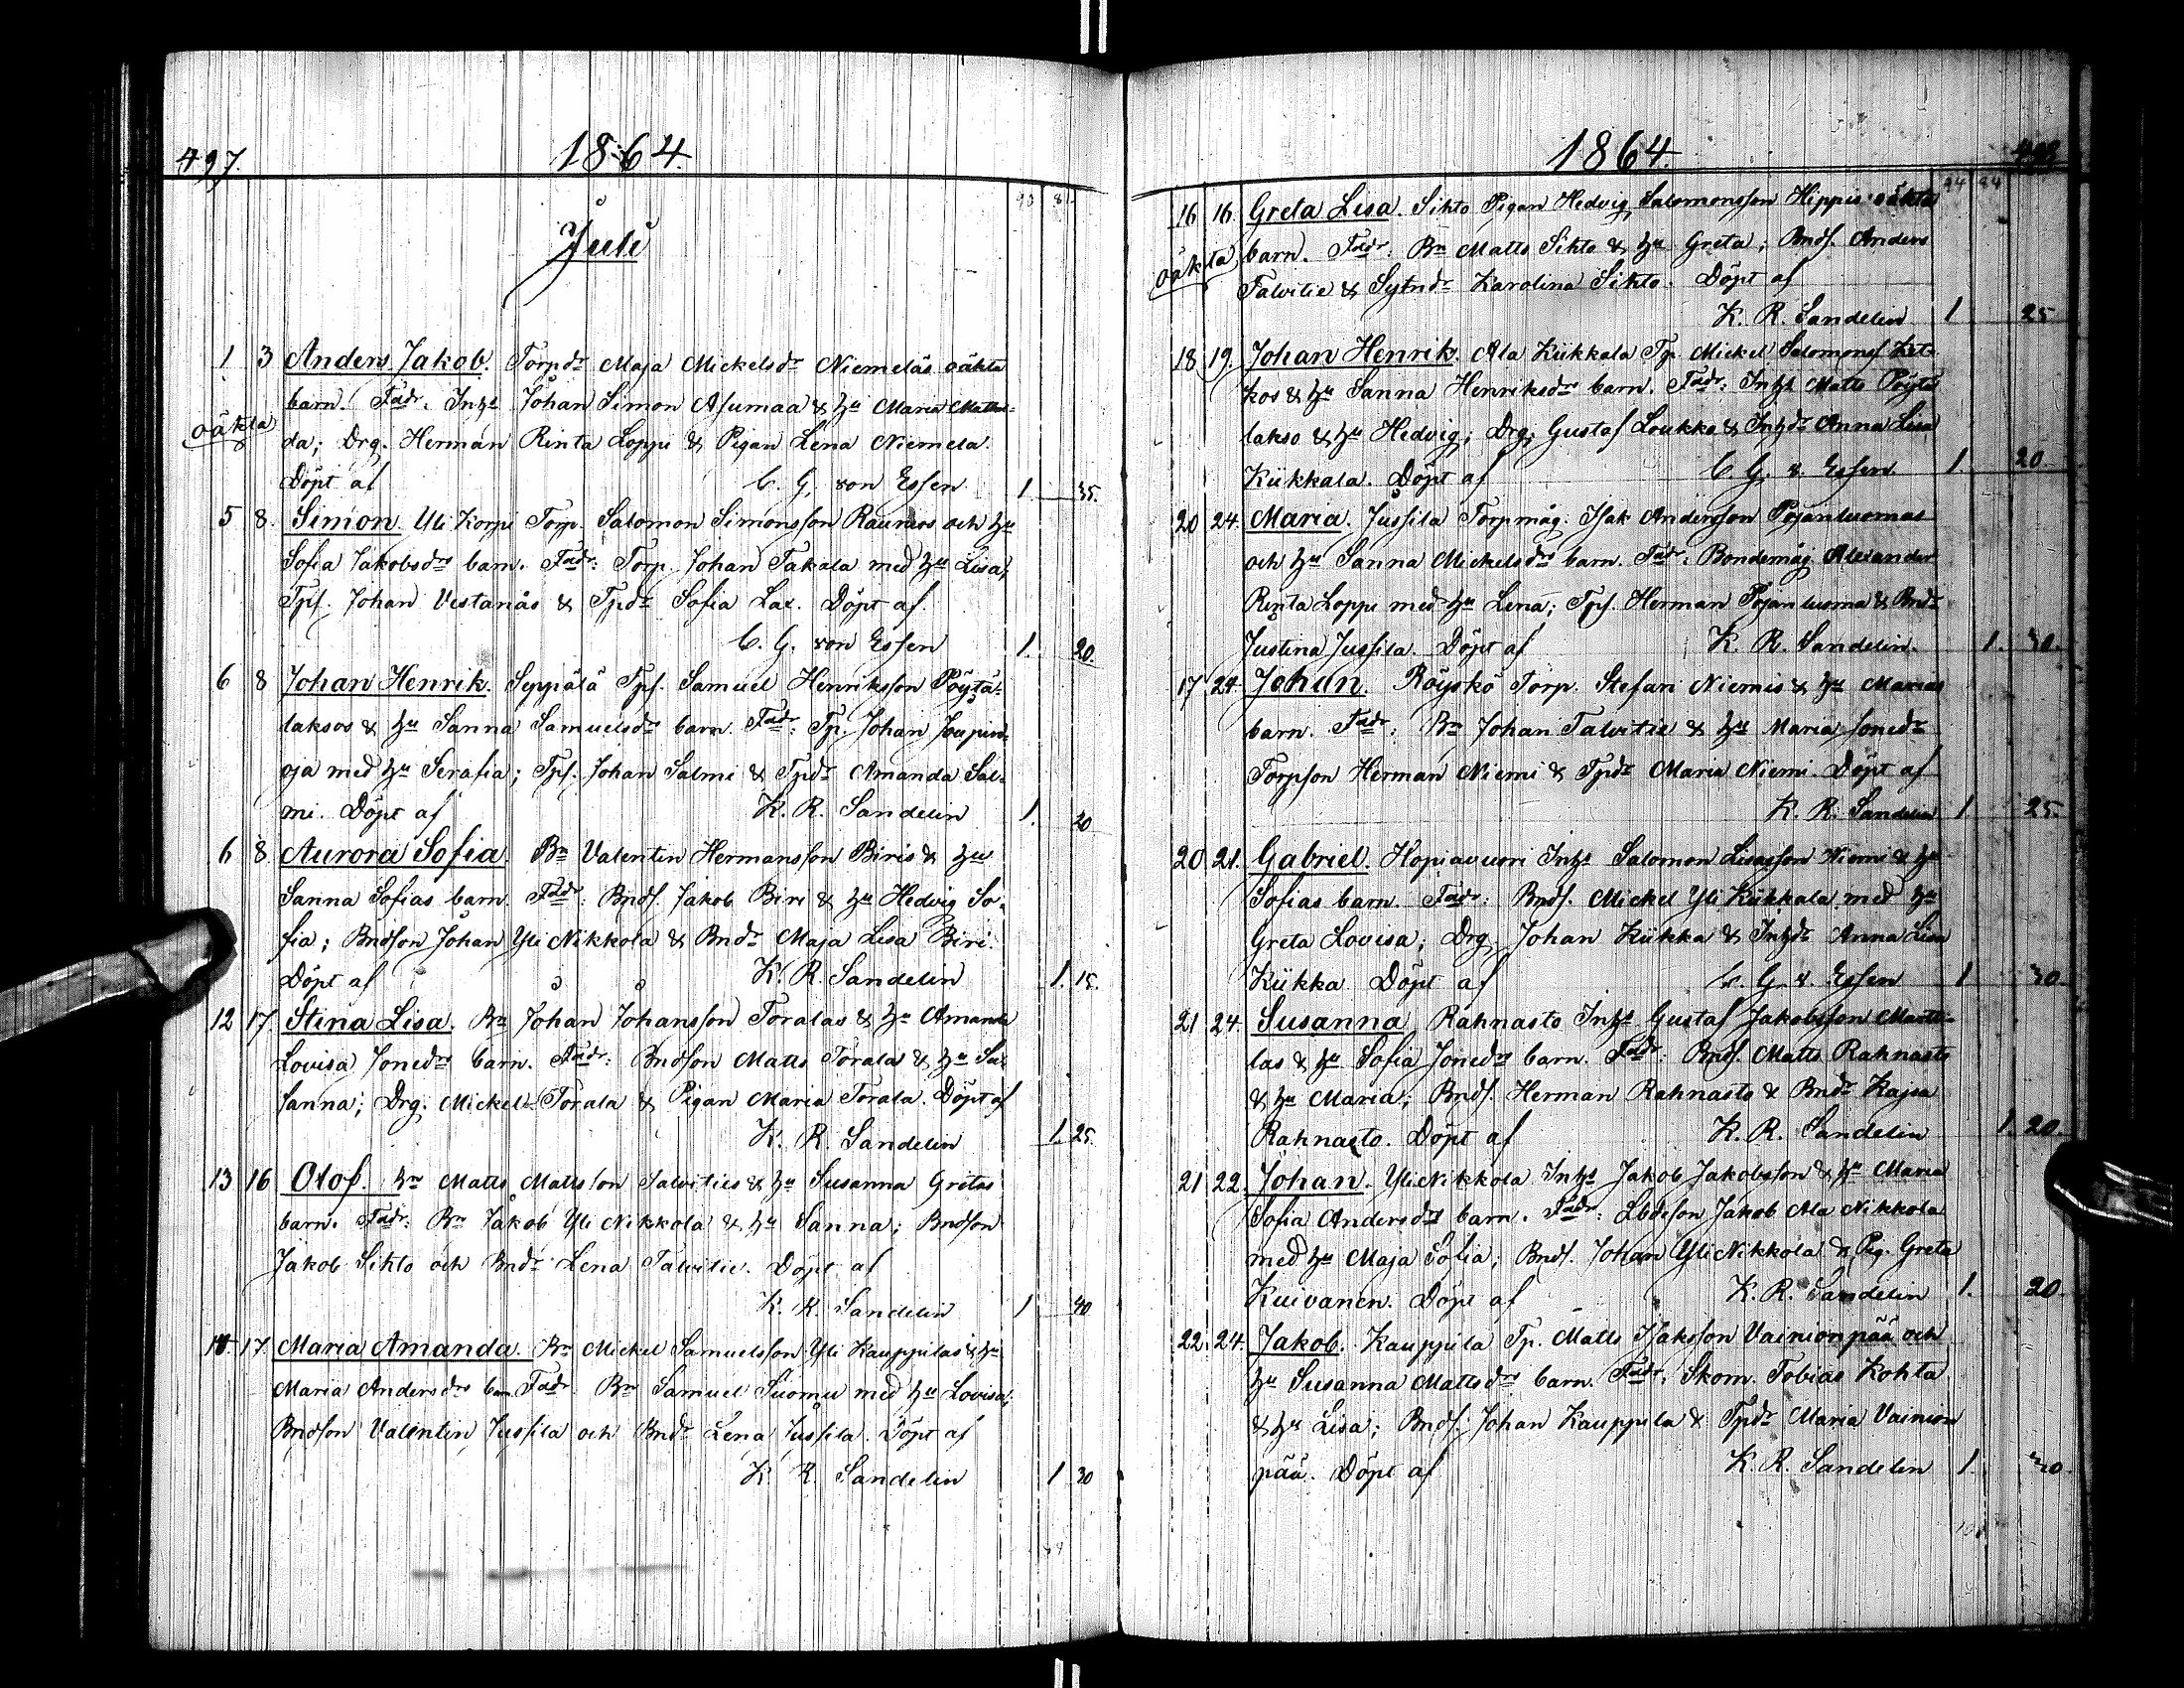 497.
1864.
90 81.
Juli
1 3 Anders Jakob. Torpdr Maja Mickelsdr Niemeläs oäkta
barn. Fadr. Inhs Johan Simon Asumaa & hu Maria Mathil-
oäkta da; Drg. Herman Rinta Loppi & Pigan Lena Niemelä.
Döpt af C. G. von Essen 1 35.
5 8. Simon. Yli Korpi Torp. Salomon Simonsson Raunios och hu
Sofia Jakobsdrs barn. Fadr: Torp. Johan Takala med hu Lisa;
Tpf. Johan Vestanås & Tpdr Sofia Lax. Döpt af
C. G. von Essen 1. 20.
6 8 Johan Henrik. Seppälä Tpf. Samuel Henriksson Pöytä-
laksos & hu Sanna Samuelsdrs barn. Fadr: Tp. Johan Joupin-
oja med hu Serafia; Tpf. Johan Salmi & Tpdr Amanda Sal-
mi. Döpt af K. R. Sandelin 1. 20
6 8. Aurora Sofia. Bn Valentin Hermansson Biris & hu
Sanna Sofias barn. Fadr: Bndf. Jakob Biri & hu Hedvig So-
fia; Bndson Johan Yli Nikkola & Bndr Maja Lisa Biri.
Döpt af K. R. Sandelin 1. 15.
12 17. Stina Lisa. Bn Johan Johansson Toralas & hu Amanda
Lovisa Jonedrs barn. Fadr: Bndson Matts Torala & hu Su-
sanna; Drg. Mickel Torala & Pigan Maria Torala. Döpt af
K. R. Sandelin 1. 25.
13 16 Olof. Bn Matts Mattsson Talvities & hu Susanna Gretas
barn. Fadr: Bn Jakob Yli Nikkola & hu Sanna; Bndson
Jakob Sihto och Bndr Lena Talvitie. Döpt af
K. R. Sandelin 1 40
17. Maria Amanda. Bn Mickel Samuelsson Yli Kauppilas & hu
Maria Andersdrs barn. Fadr. Bn Samuel Suomu med hu Lovisa;
Bndson Valentin Jussila och Bndr Lena Jussila. Döpt af
K. R. Sandelin 1 30
1864.
16 16. Greta Lisa. Sihto Pigan Hedvig Salomonsson Hippis oäkta
oäkta barn. Fadr: Bn Matts Sihto & hu Greta; Bndf. Anders
Talvitie & Sytndr Karolina Sihto. Döpt af
K. R. Sandelin 1 25
18 19. Johan Henrik. Ala Kükkala Tp. Mickel Salomonsf Ket-
kos & hu Sanna Henriksdrs barn. Fadr: Inhs Matts Pöytä
lakso & hu Hedvig; Drg. Gustaf Loukko & Inhdr Anna Lisa
Kükkala. Döpt af C. G. v. Essen 1. 20.
20 24. Maria. Jussila Torpmåg. Isak Andersson Pojanluomas
och hu Sanna Mickelsdrs barn. Fadr: Bondemåg Alexander
Rinta Loppi med hu Lena; Tpf. Herman Pojanluoma & Bndr
Justina Jussila. Döpt af K. R. Sandelin. 1. 30.
17 24. Johan. Röyskö Torp. Stefan Niemis & hu Marias
barn. Fadr: Bn Johan Talvitie & hu Maria Jonedr
Torpson Herman Niemi & Tpdr Maria Niemi. Döpt af
K. R. Sandelin 1 25.
20 21. Gabriel. Hopiavuori Inhs Salomon Lisasson Niemi & hu
Sofias barn. Fadr: Bndf. Mickel Yli Kükkala med hu
Greta Lovisa; Drg. Johan Kükka & Inhdr Anna Lisa
Kükka. Döpt af C. G. v. Essen 1 30.
21 24. Susanna. Rahnasto Inhs Gustaf Jakobsson Martti-
las & hu Sofia Jonedrs barn. Fadr: Bndf. Matts Rahnasto
& hu Maria; Bndf. Herman Rahnasto & Bndr Kajsa
Rahnasto. Döpt af K. R. Sandelin 1. 20.
21 22. Johan. Yli Nikkola Inhs Jakob Jakobsson & hu Maria
Sofia Andersdrs barn. Fadr: Lbdeson Jakob Ala Nikkola
med hu Maja Sofia; Bndf. Johan Yli Nikkola & Pig. Greta
Kuivanen. Döpt af K. R. Sandelin 1. 20.
22. 24. Jakob. Kauppila Tp. Matts Isaksson Vainionpää och
hu Susanna Mattsdrs barn. Fadr. Skom. Tobias Kohta
& hu Lisa; Bndf. Johan Kauppila & Tpdr Maria Vainion
pää. Döpt af K. R. Sandelin 1. 30.